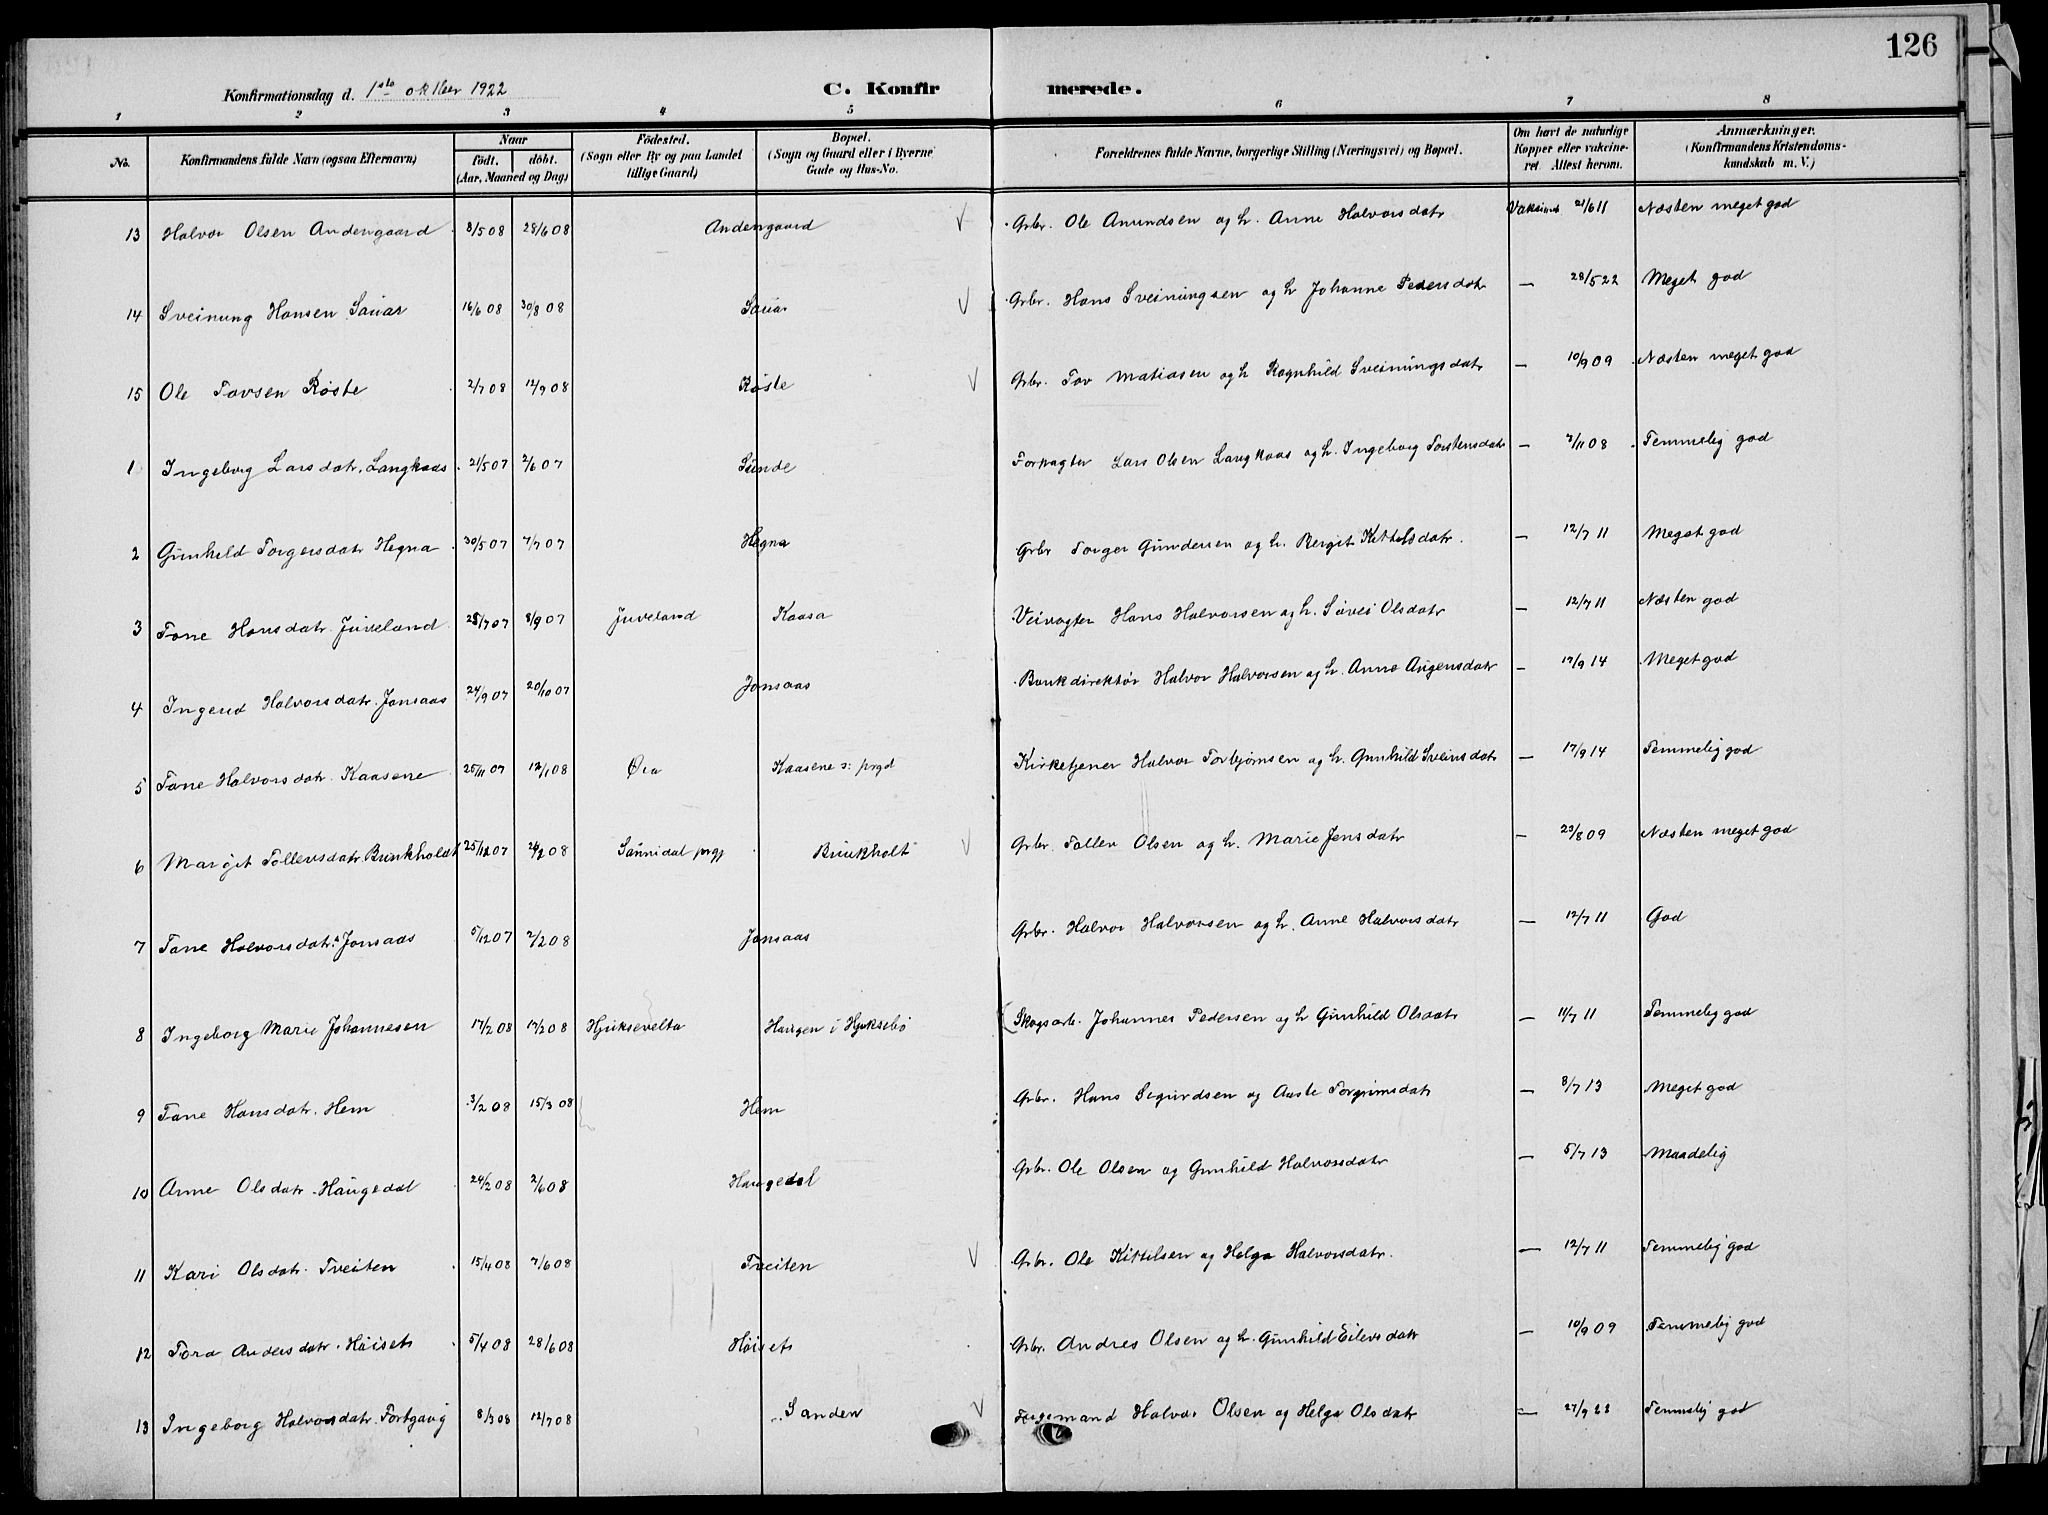 126
Konfirmationsdag d. 1ste oktber 1922 C. Konfirmerede.
1 2 3 4 5 6 7 8
No. Konfirmandens fulde Navn (ogsaa Efternavn) Naar født. døbt. (Aar, Maaned og Dag) Födested. (Sogn eller By og paa Landet tillige Gaard) Bopæl. (Sogn og Gaard eller i Byerne Gade og Hus-No. Forældrenes fulde Navne, borgerlige Stilling (Næringsvei) og Bopæl. Om havt de naturlige Kopper eller vakcineret Attest herom. Anmærkninger. (Konfirmandens Kristendomskundskab m. V.)
13 Halvor Olsen Andersgaard 8/5 08 28/6 08 Andersgaard Grbr. Ole Amundsen og h. Anne Halvorsdatr Vaksinert 21/6 11 Næsten meget god
14 Sveinung Hansen Sauar 16/6 08 30/8 08 Sauar Grbr. Hans Sveinungsen og h Johanne Pedersdatr — 28/5 22 Meget god
15 Ole Tovsen Røste 2/7 08 12/9 08 Røste Grbr. Tov Matiasen og h Ragnhild Sveinungsdatr — 10/9 09 Næsten meget god
1 Ingeborg Larsdatr. Langkaas 21/5 07 2/6 07 Sunde Forpagter Lars Olsen Langkaas og h. Ingeborg Torstensdatr — 3/11 08 Temmelig god
2 Gunhild Torgersdatr Hegna 30/5 07 7/7 07 Hegna Grbr Torger Gundersen og h. Bergit Kittelsdatr. — 12/7 11 Meget god
3 Tone Hansdatr. Juveland 28/7 07 8/9 07 Juveland Kaasa Veivogter Hans Halvorsen og h. Sivei Olsdatr — 12/7 11 Næsten god
4 Ingerid Halvorsdatr. Jonsaas 24/9 07 20/10 07 Jonsaas Bankdirektør Halvor Halvorsen og h. Anne Aagensdatr — 17/9 14 Meget god
5 Tone Halvorsdatr. Kaasene 25/11 07 12/1 08 Øra Kaasene s: prgd Kirketjener Halvor Torbjørnsen og h. Gunhild Sveinsdatr — 17/9 14 Temmelig god
6 Margit Tollevsdatr. Brunkholdt 25/12 07 24/2 08 Sannidal prgj Brunkholt Grbr. Tollev Olsen og h. Marie Jensdatr — 23/8 09 Næsten meget god
7 Tone Halvorsdatr. Jonsaas 5/12 07 2/2 08 Jonsaas Grbr. Halvor Halvorsen og h. Anne Halvorsdatr — 12/7 11 God
8 Ingeborg Marie Johannesen 17/2 08 17/2 08 Hjuksevelta Haugen i Hjuksebø Skogsarb. Johannes Pedersen og h Gunhild Olsdatr — 11/7 11 Temmelig god
9 Tone Hansdatr. Hem 3/2 08 15/3 08 Hem Grbr. Hans Sigurdsen og Aaste Torgrimsdatr — 8/7 13 Meget god
10 Anne Olsdatr. Haugedal 24/2 08 2/6 08 Haugedal Grbr. Ole Olsen og Gunhild Halvorsdatr — 5/7 13 Maadelig
11 Kari Olsdatr. Tveiten 15/4 08 7/6 08 Tveiten Grbr. Ole Kittilsen og Helga Halvorsdatr. — 12/7 11 Temmelig god
12 Tora Andersdatr. Høiset 5/4 08 28/6 08 Høiset Grbr. Andres Olsen og h. Gunhild Eilevsdatr — 10/9 09 Temmelig god
13 Ingeborg Halvorsdatr. Fortgang 8/3 08 12/7 08 Sanden Halvor Olsen og Helga Olsdatr — 27/9 23 Temmelig god